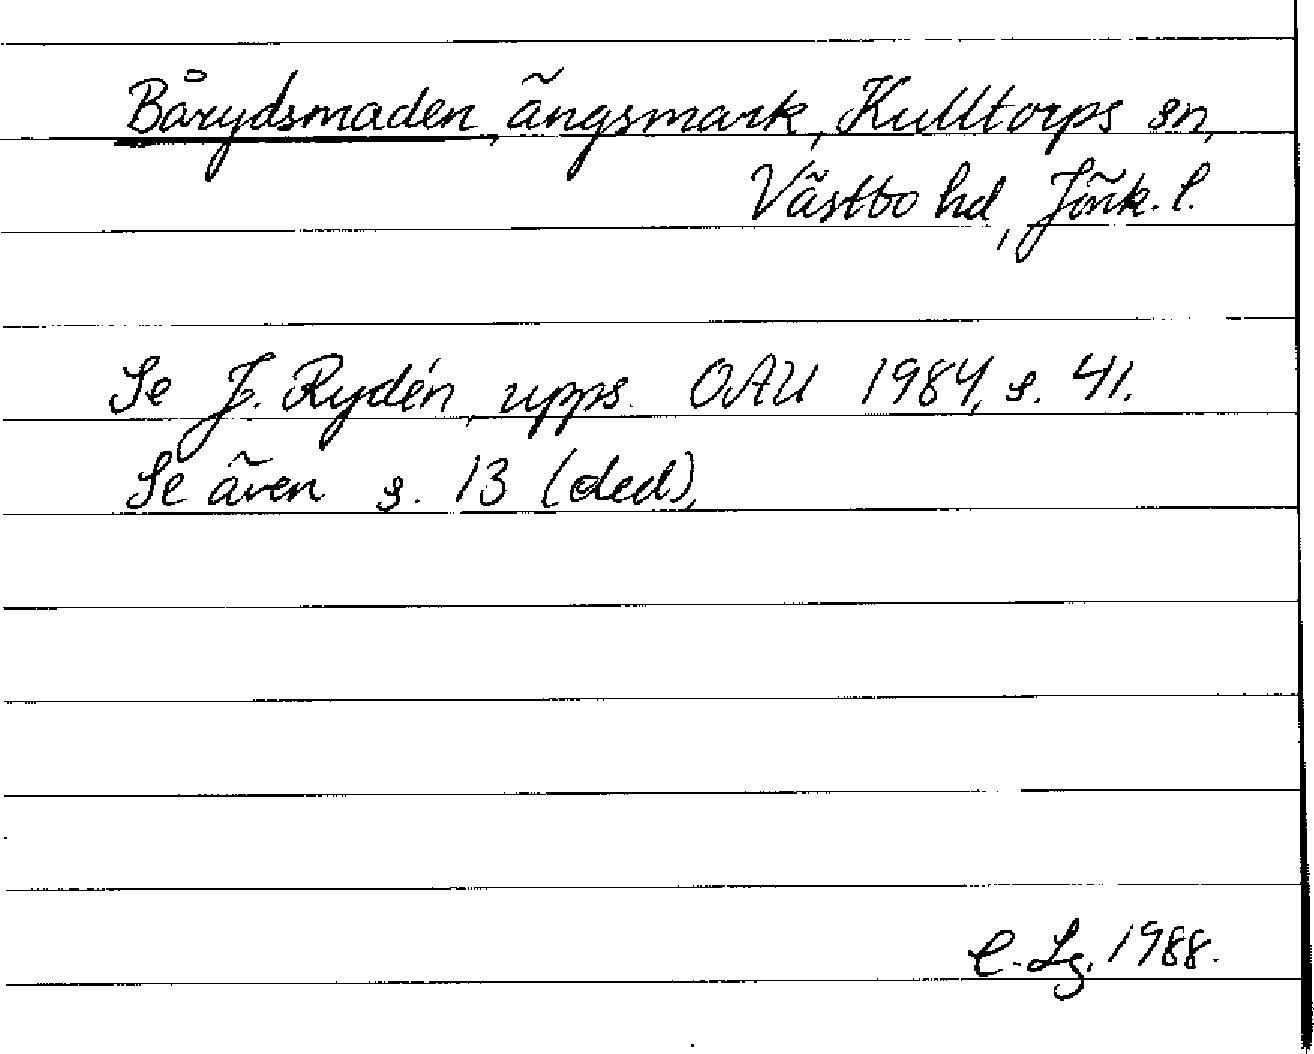 Bårydsmaden, ängsmark, Kulltorps sn,
Västbo hd, Jönk. l.
Se J. Rydén, upps. OAU 1984, s. 41.
Se även s. 13 (ded).
C. Lg. 1988.